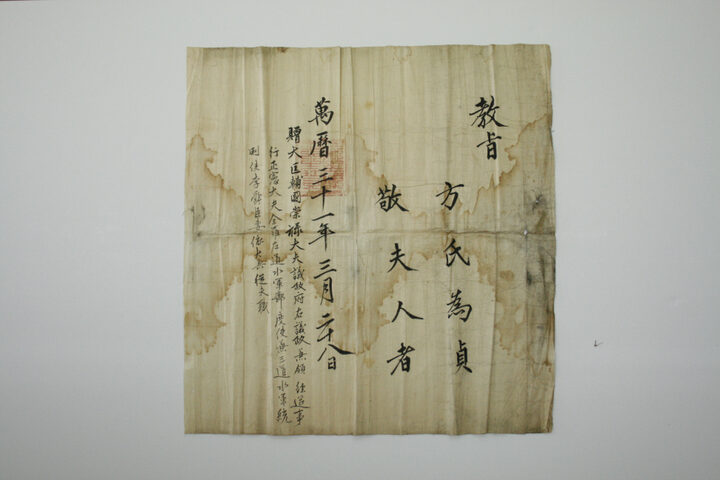 教旨
方氏為貞
敬夫人者
萬曆三十一年三月二十八日
贈大匡輔國崇祿大夫議政府右議政兼領經筵事
行正憲大夫全羅左道水軍節度使兼三道水軍統
制使李舜臣妻依大典從夫職